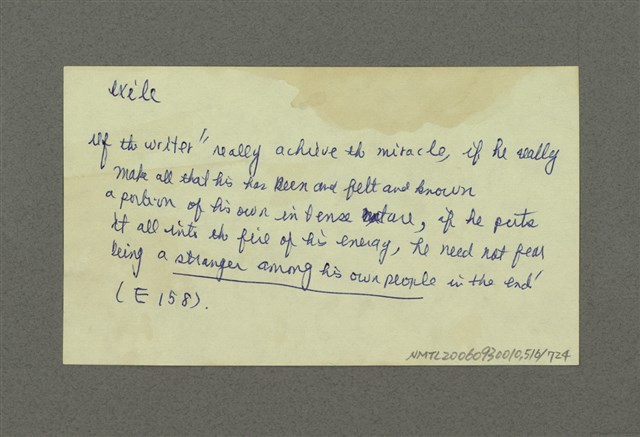 exile
if th writer "really achieve th miracle, if he really
make all that his has been and felt and known
a portion of his own intense nature, if he puts
it all into th fire of his energy, he need not fear
being a stranger among his own people in the end'
(E 158).
NMTL20060930010,516/724